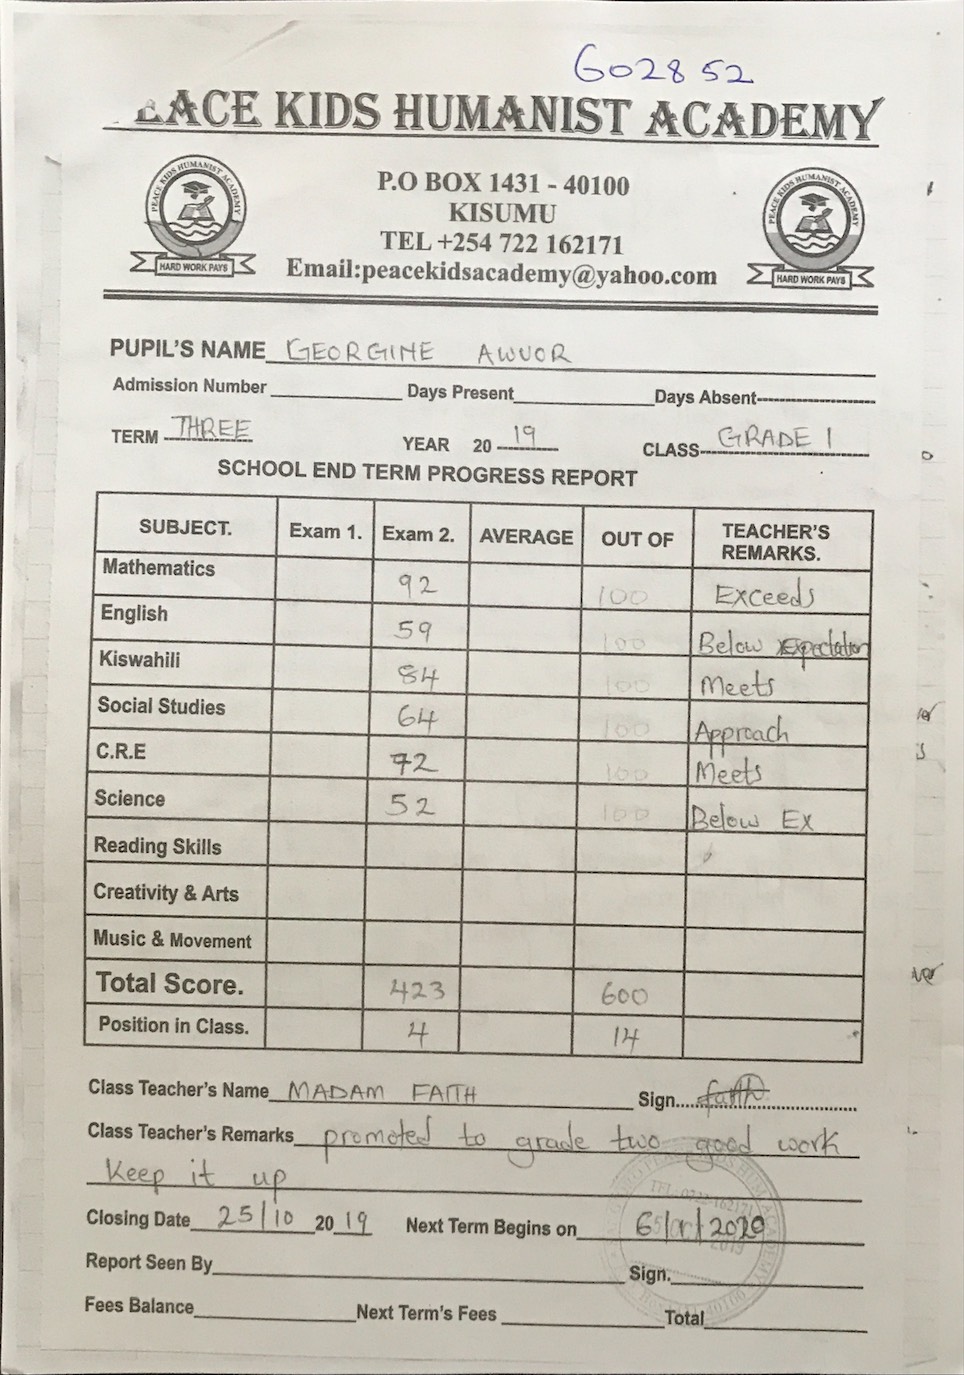 G02852
PEACE KIDS HUMANIST ACADEMY
PEACE KIDS HUMANIST ACADEMY
HARD WORK PAYS
P.O BOX 1431 - 40100
KISUMU
TEL +254 722 162171
Email:peacekidsacademy@yahoo.com
PEACE KIDS HUMANIST ACADEMY
HARD WORK PAYS
PUPIL'S NAME GEORGINE AWUOR
Admission Number Days Present Days Absent
TERM THREE YEAR 2019 CLASS GRADE 1
SCHOOL END TERM PROGRESS REPORT
SUBJECT. Exam 1. Exam 2. AVERAGE OUT OF TEACHER'S REMARKS.
Mathematics 92 100 Exceeds
English 59 100 Below Expectation
Kiswahili 84 100 Meets
Social Studies 64 100 Approach
C.R.E 72 100 Meets
Science 52 100 Below Ex
Reading Skills
Creativity & Arts
Music & Movement
Total Score. 423 600
Position in Class. 4 14
Class Teacher's Name MADAM FAITH Sign. faith
Class Teacher's Remarks promoted to grade two good work
Keep it up
Closing Date 25/10 2019 Next Term Begins on 6/01/2020
Report Seen By Sign.
Fees Balance Next Term's Fees Total